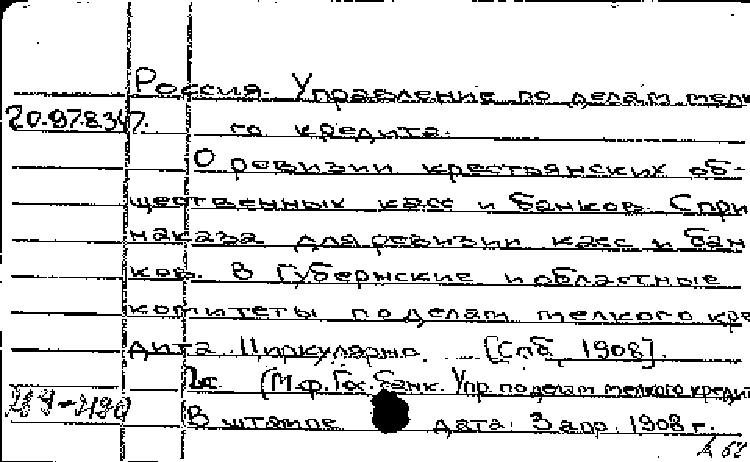 Россия. Управление по делам мелко
20.87.8347.
го кредита.
О ревизии крестьянских об-
щественных касс и банков. С при
наказа для ревизии касс и бан
ков. В Губернские и областные
комитеты по делам мелкого кре
дита. Циркулярно. [Спб, 1908].
2с. (М.ф. Гос. банк. Упр. по делам мелкого кредит
В штампе дата: 3 апр. 1908 г.